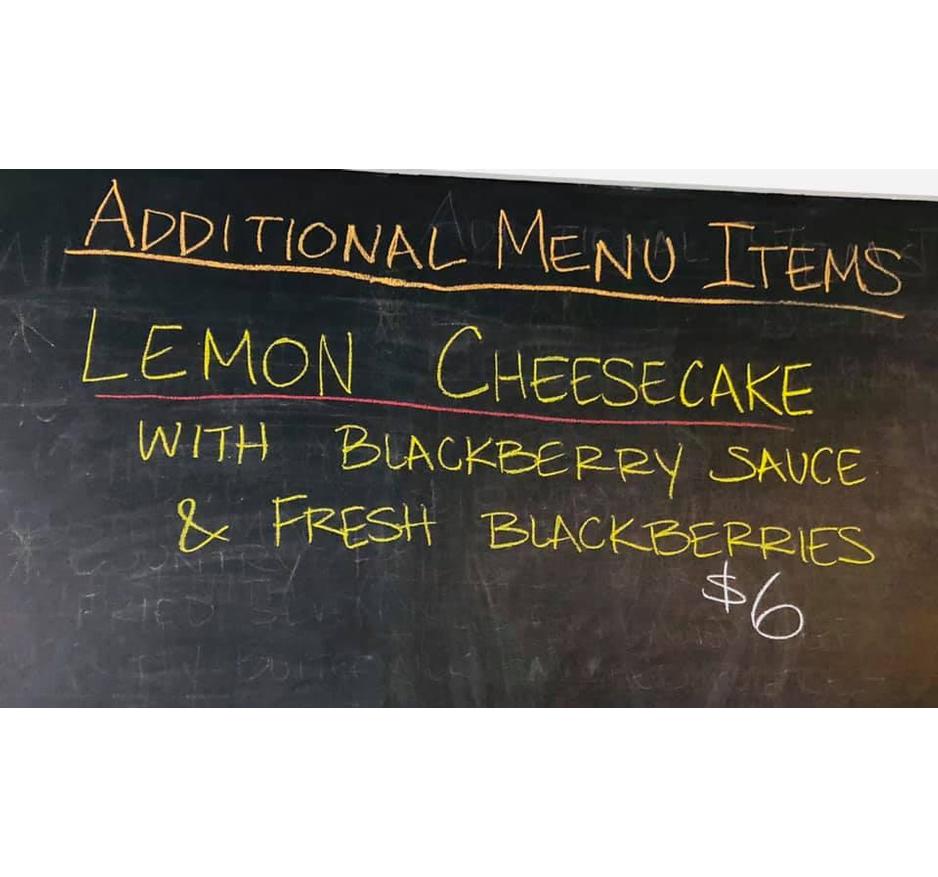 ADDITIONAL MENU ITEMS
LEMON CHEESECAKE
WITH BLACKBERRY SAUCE
& FRESH BLACKBERRIES
$6